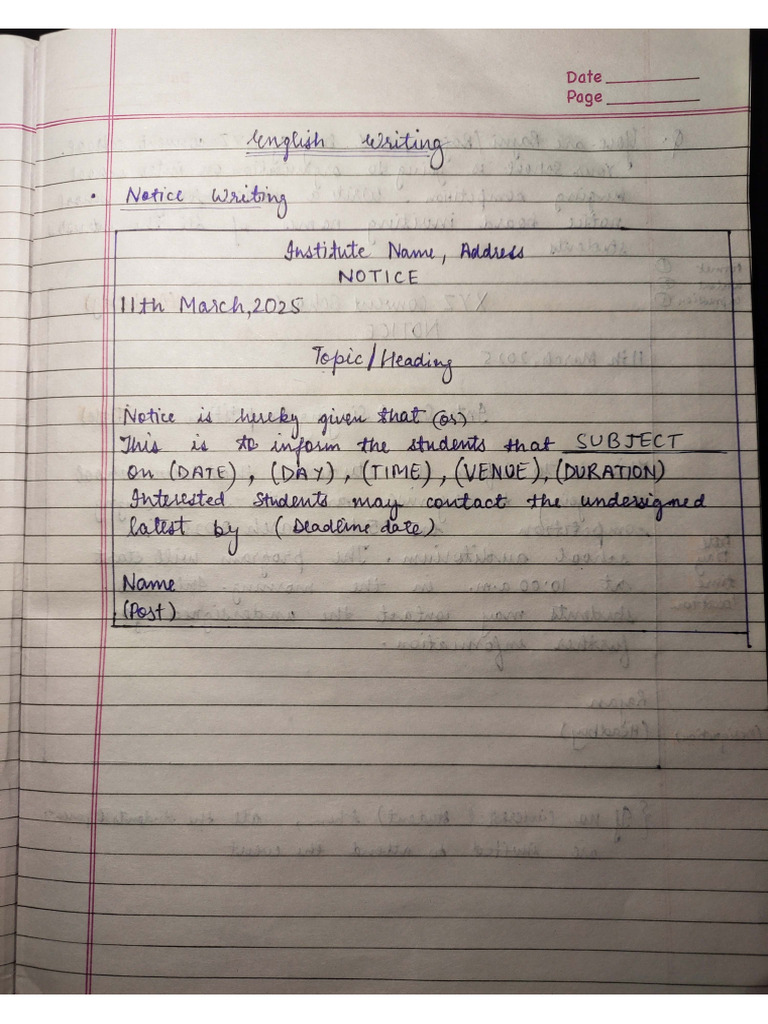 Date
Page
English Writing
• Notice Writing
Institute Name, Address
NOTICE
11th March, 2025
Topic/Heading
Notice is hereby given that (or)
This is to inform the students that SUBJECT
on (DATE), (DAY), (TIME), (VENUE), (DURATION)
Interested students may contact the undersigned
latest by (Deadline date)
Name
(Post)